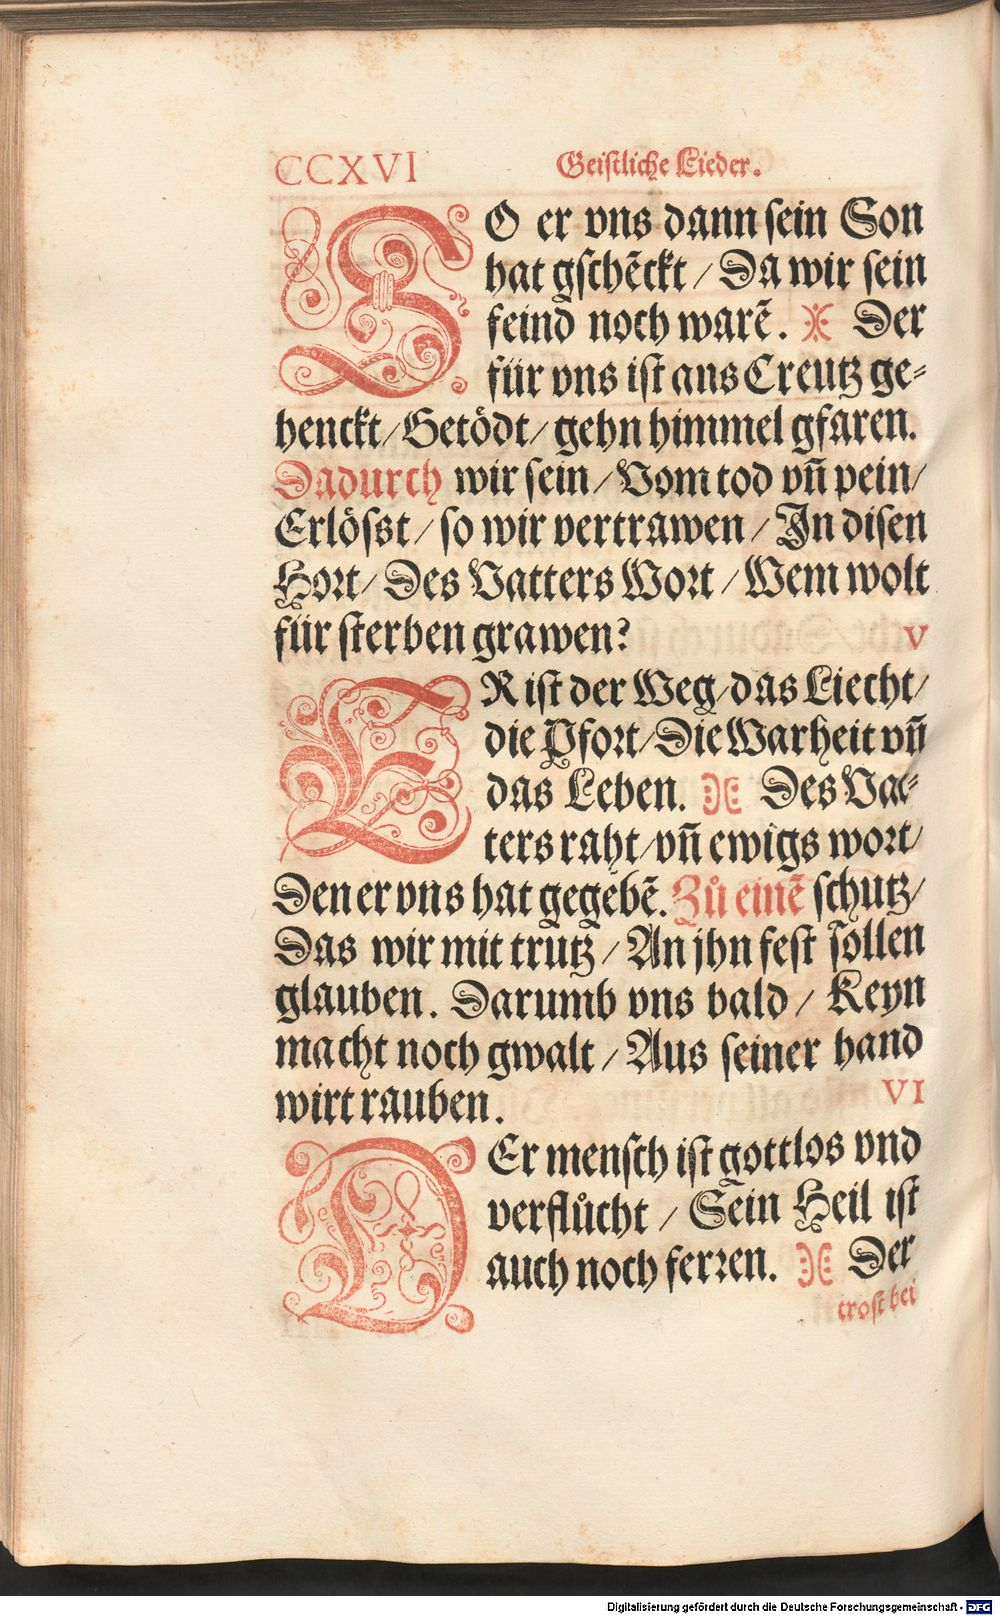 CCXVI Geistliche Lieder.
SO er vns dann sein Son
hat gschẽckt / Da wir sein
feind noch warẽ. Der
für vns ist ans Creutz ge-
henckt / Getödt / gehn himmel gfaren.
Dadurch wir sein / Vom tod vñ pein /
Erlößt / so wir vertrawen / In disen
Hort / Des Vatters Wort / Wem wolt
für sterben grawen? V
ER ist der Weg / das Liecht /
die Pfort / Die Warheit vñ
das Leben. Des Vat-
ters raht / vñ ewigs wort /
Den er vns hat gegebẽ. Zů einẽ schutz /
Das wir mit trutz / An jhn fest sollen
glauben. Darumb vns bald / Keyn
macht noch gwalt / Aus seiner hand
wirt rauben. VI
DEr mensch ist gottlos vnd
verflůcht / Sein Heil ist
auch noch ferren. Der
trost bei
Digitalisierung gefördert durch die Deutsche Forschungsgemeinschaft - DFG